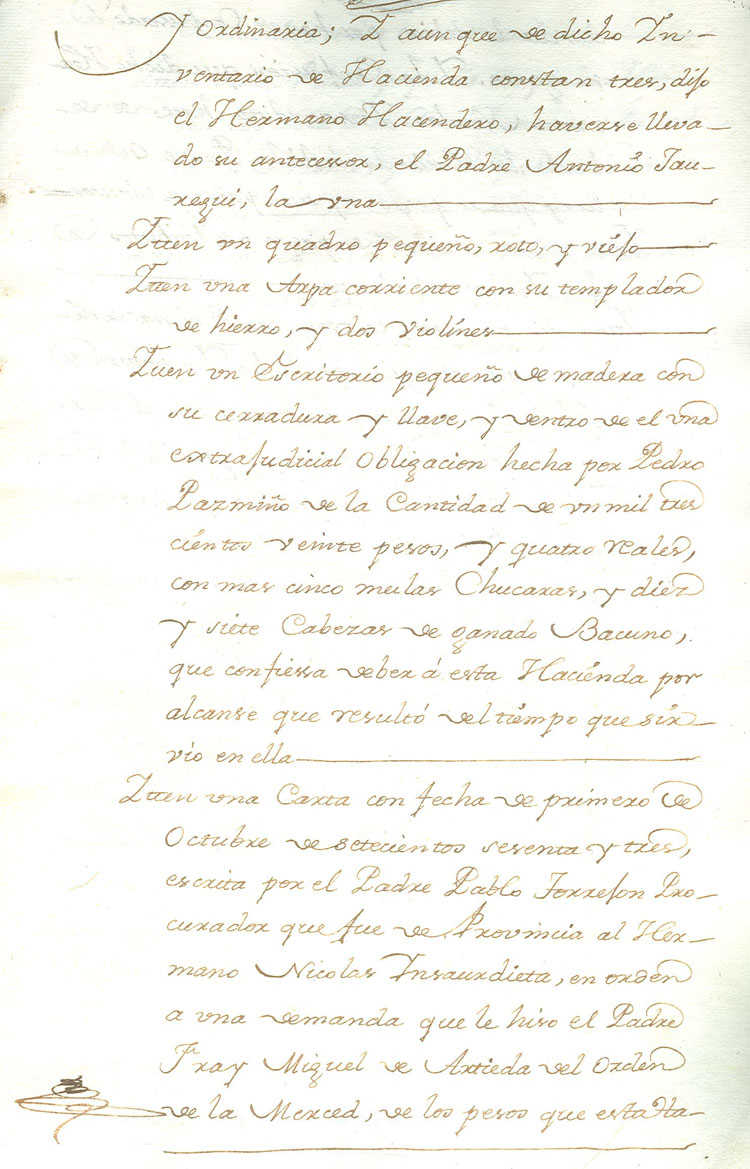 y Ordinaria; Y aun que de dicho In-
ventario de Hacienda constan tres, dijo
el Hermano Hacendero, haverse lleva-
do su antecessor, el Padre Antonio Jau-
regui, la vna
Itten vn quadro pequeño, roto, y viejo
Itten vna Arpa corriente con su templador
de hierro, y dos violines
Itten vn Escritorio pequeño de madera con
su cerradura y llave, y dentro de el vna
extrajudicial obligacion hecha por Pedro
Pazmiño de la Cantidad de vn mil tres
cientos veinte pesos, y quatro reales,
con mas cinco mulas Chucaras, y diez
y siete Cabezas de ganado Bacuno,
que confiessa deber á esta Hacienda por
alcanse que resultó del tiempo que sir-
vio en ella
Itten vna Carta con fecha de primero de
Octubre de setecientos sesenta y tres,
escrita por el Padre Pablo Torrejon Pro-
curador que fue de Provincia al Her-
mano Nicolas Insaurdieta, en orden
a vna demanda que le hiso el Padre
Fray Miguel de Artieda del Orden
de la Merced, de los pesos que esta Ha-